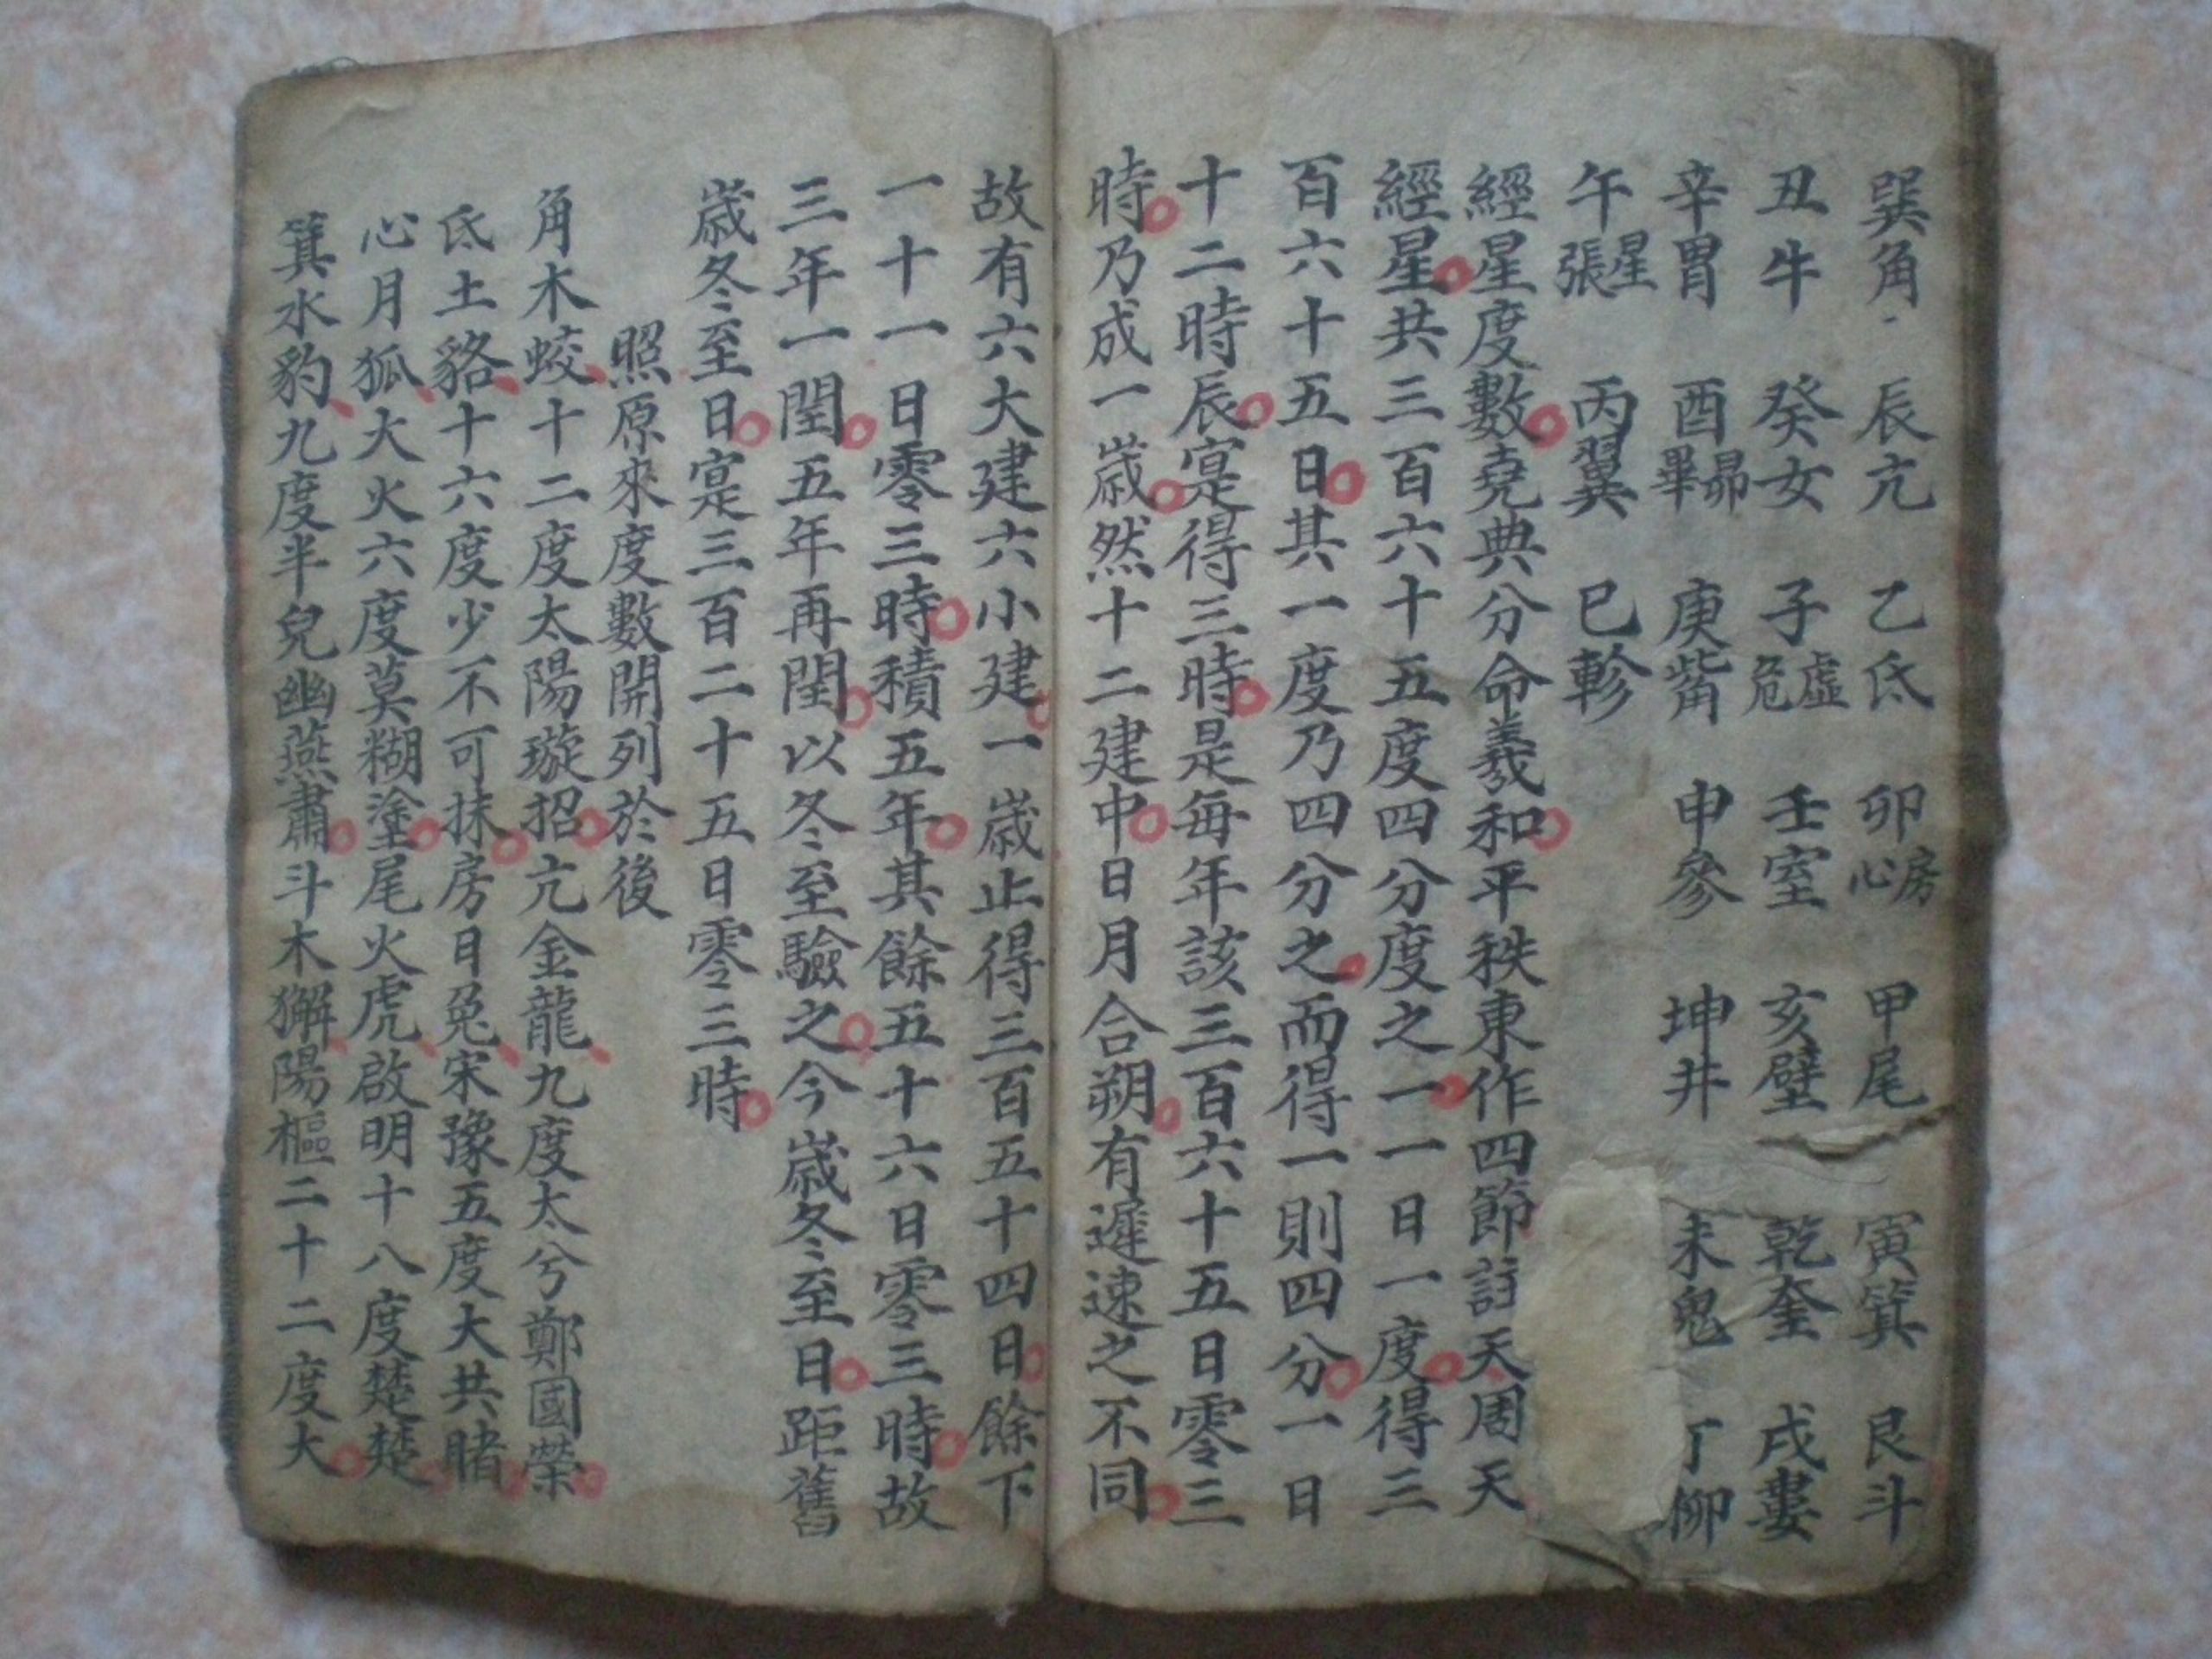 巽角 辰亢 乙氐 卯房心 甲尾 寅箕 艮斗
丑牛 癸女 子虛危 壬室 亥壁 乾奎 戌婁
辛胃 酉昴畢 庚觜 申參 坤井 未鬼 丁柳
午星張 丙翼 巳軫
經星度數堯典分命羲和平秩東作四節註天周天
經星共三百六十五度四分度之一一日一度得三
百六十五日其一度乃四分之而得一則四分一日
十二時辰寔得三時是每年該三百六十五日零三
時乃成一歲然十二建中日月合朔有遲速之不同
故有六大建六小建一歲止得三百五十四日餘下
一十一日零三時積五年其餘五十六日零三時故
三年一閏五年再閏以冬至驗之今歲冬至日距舊
歲冬至日寔三百二十五日零三時
照原來度數開列於後
角木蛟十二度太陽璇招亢金龍九度太兮鄭國榮
氐土貉十六度少不可抹房日兔宋豫五度大共睹
心月狐大火六度莫糊塗尾火虎啟明十八度楚楚
箕水豹九度半兒幽燕肅斗木獬陽樞二十二度大